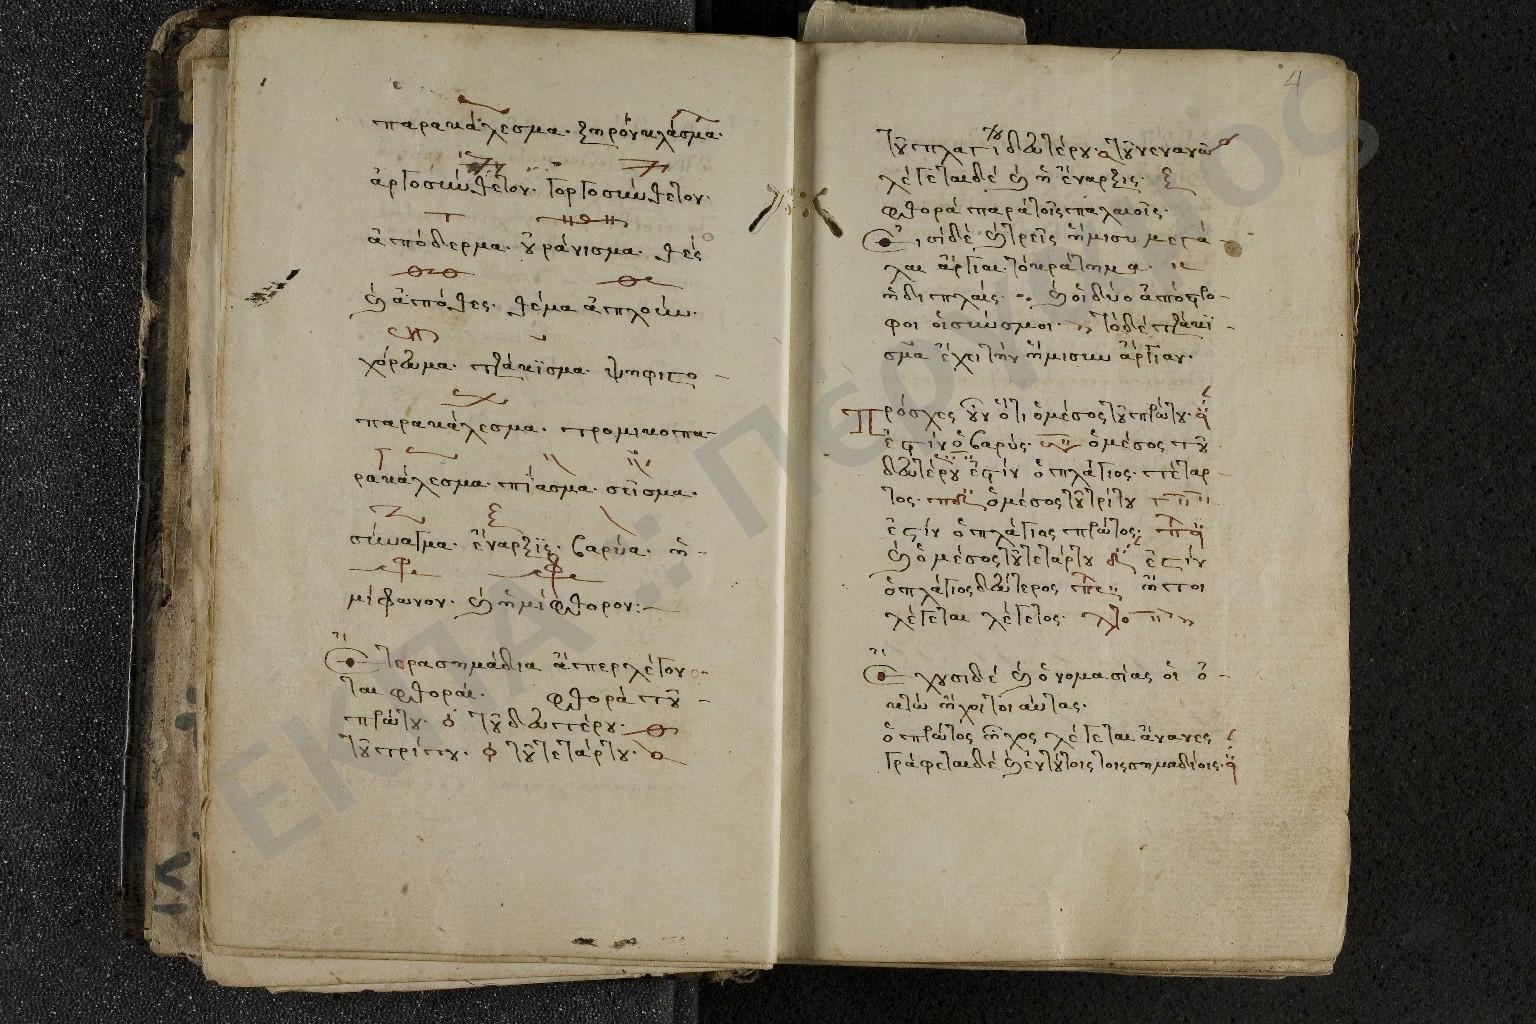 παρακάλεσμα. ξηρόν κλάσμα.
ἀργοσύνθετον. γοργοσύνθετον.
ἀπόδερμα. οὐράνισμα. θές
καὶ ἀπόθες. θέμα ἁπλοῦν.
χόρευμα. τζάκισμα. ψηφιστο
παρακάλεσμα. τρομικοπα
ρακάλεσμα. πίασμα. σεῖσμα.
σύναγμα. ἔναρξις. βαρεῖα. ἡ
μίφωνον. καὶ ἡμίφθορον:
Ἕτερα σημάδια ἅπερ λέγον
ται φθοραί. φθορὰ τοῦ
πρώτου. τοῦ δευτέρου.
τοῦ τρίτου. τοῦ τετάρτου.
4
τοῦ πλαγίου δευτέρου. τοῦ νενανῶ
λέγεται δὲ καὶ ἡ ἔναρξις.
φθορὰ παρὰ τοῖς παλαιοῖς.
Εἰσὶ δὲ καὶ τρεῖς ἥμισυ μεγά
λαι ἀργίαι. τὸ κράτημα.
ἡ διπλαῖς. καὶ οἱ δύο ἀπόστρο
φοι οἱ σύνδεσμοι. τὸ δὲ τζάκι
σμα ἔχει τὴν ἥμισυν ἀργίαν.
Πρόσχες οὖν ὅτι ὁ μέσος τοῦ πρώτου.
ἐστὶν ὁ βαρύς. ὁ μέσος τοῦ
δευτέρου ἐστὶν ὁ πλάγιος τέταρ
τος. ὁ μέσος τοῦ τρίτου
ἐστὶν ὁ πλάγιος πρῶτος.
καὶ ὁ μέσος τοῦ τετάρτου ἐστὶν
ὁ πλάγιος δεύτερος ἤτοι
λέγεται λέγετος.
Ἔχουσι δὲ καὶ ὀνομασίας οἱ ὀ
κτὼ ἦχοι τοιαύτας.
ὁ πρῶτος ἦχος λέγεται ἄνανες
γράφεται δὲ καὶ ἐν τούτοις τοῖς σημαδίοις.
ΕΚΠΑ :: Πέργαμος